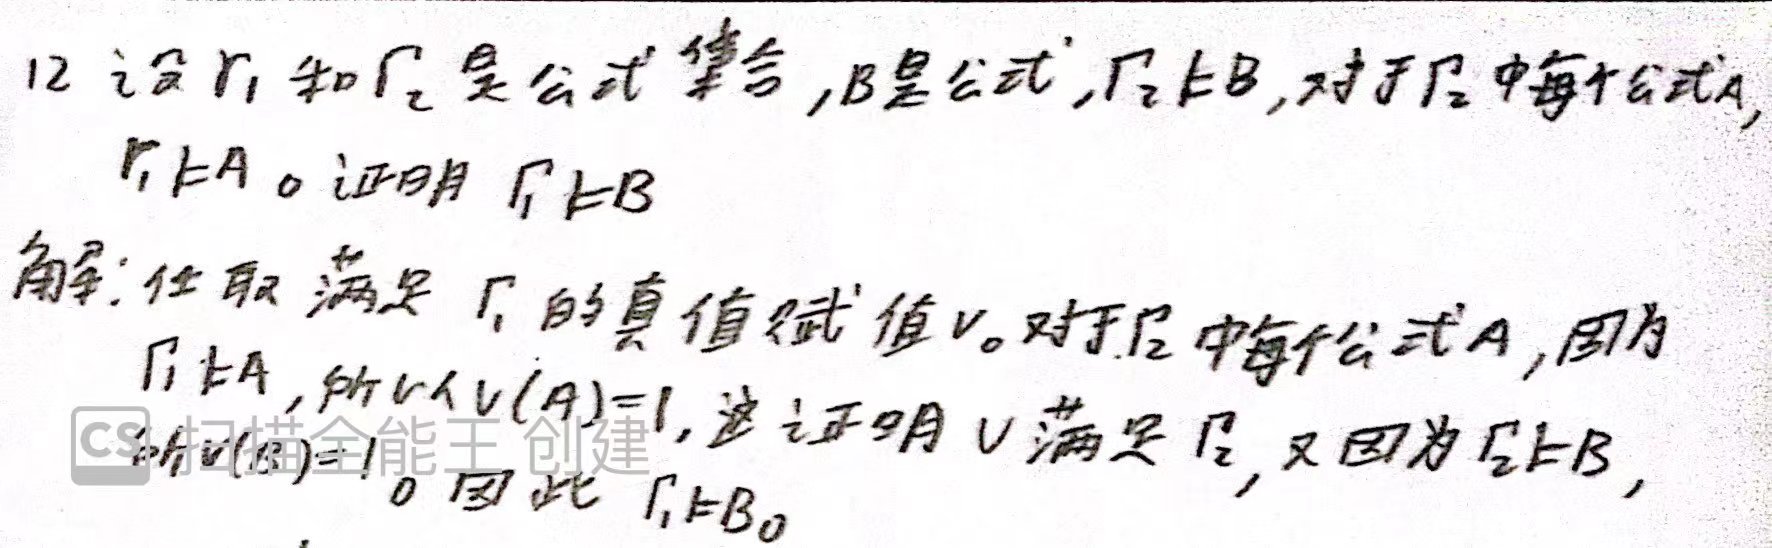 12 设Γ₁和Γ₂是公式集合,B是公式,Γ₂⊨B,对于Γ₂中每个公式A,
Γ₁⊨A。证明Γ₁⊨B
解:任取满足Γ₁的真值赋值v。对于Γ₂中每个公式A,因为
Γ₁⊨A,所以v(A)=1,这证明v满足Γ₂,又因为Γ₂⊨B,
所v(B)=1。因此Γ₁⊨B。
CS 扫描全能王 创建